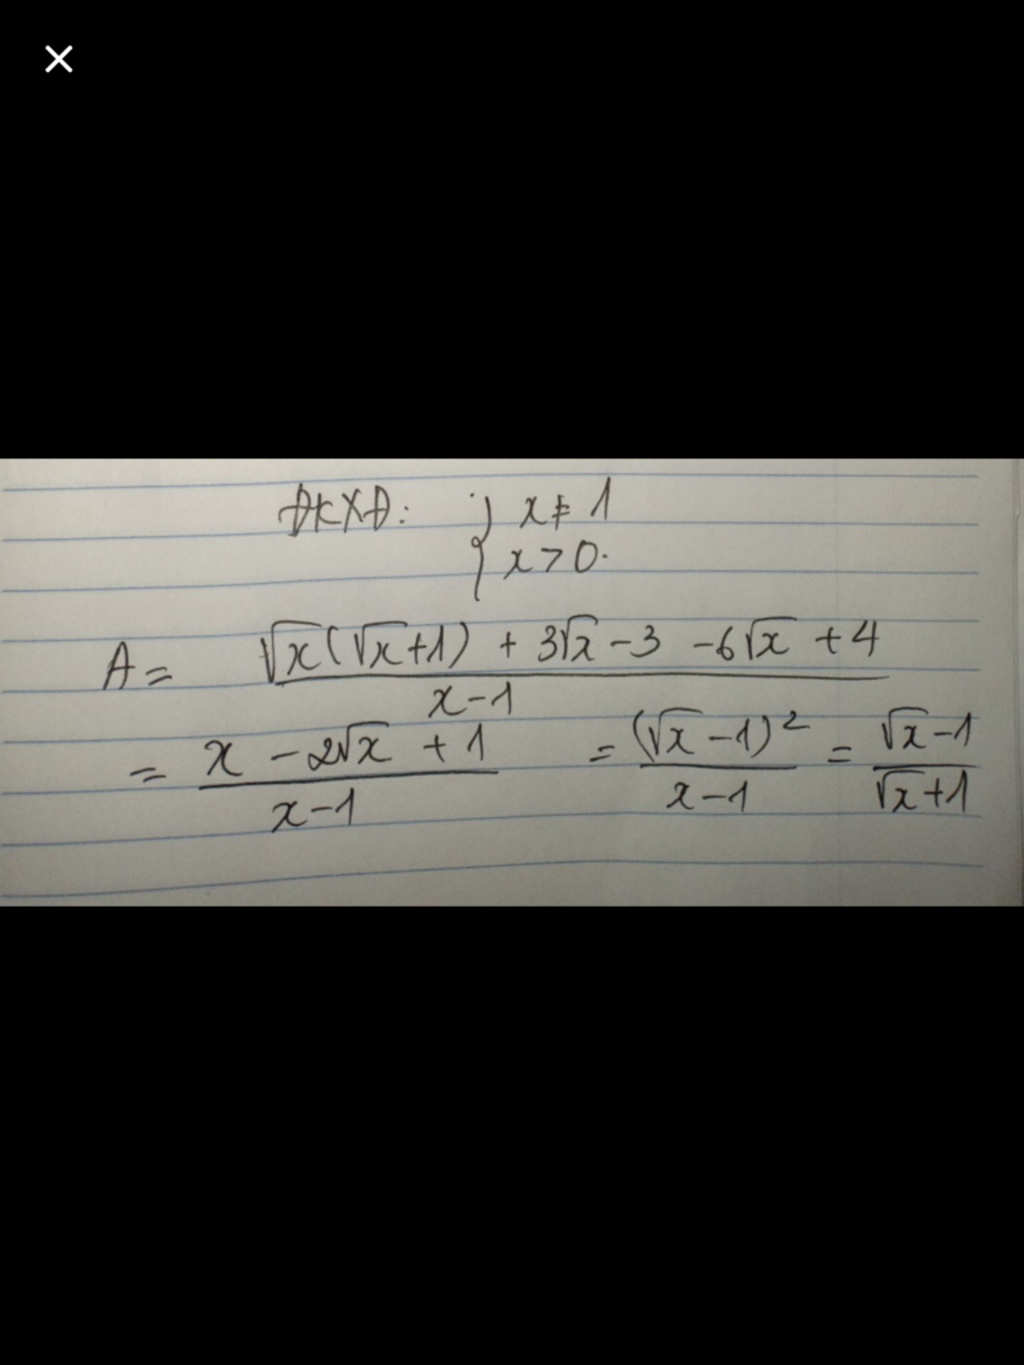 ĐKXĐ: { x ≠ 1
x > 0.
A = (√x(√x+1) + 3√x - 3 - 6√x + 4) / (x-1)
= (x - 2√x + 1) / (x-1) = (√x - 1)² / (x-1) = (√x-1) / (√x+1)